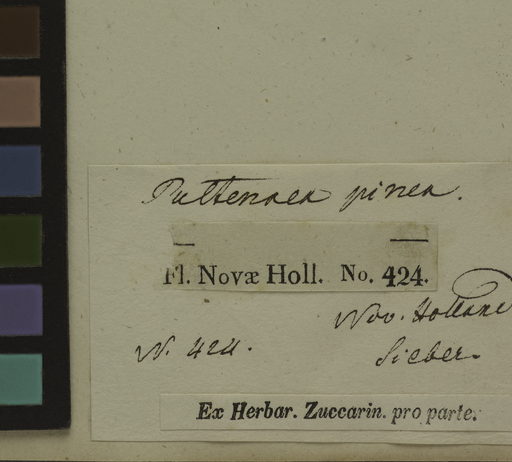 Pultenaea pinea.
Fl. Novæ Holl. No. 424.
Nov. Holland
N. 424.
Sieber.
Ex Herbar. Zuccarin. pro parte.